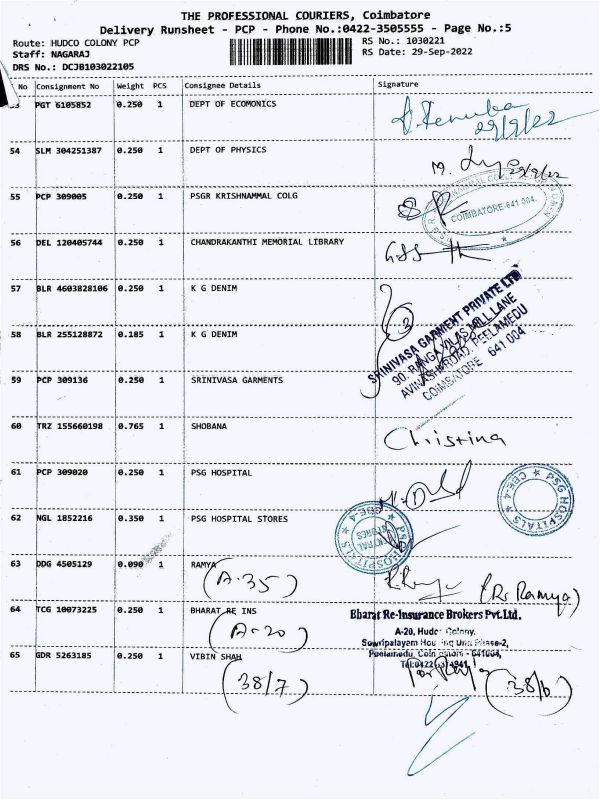 THE PROFESSIONAL COURIERS, Coimbatore
Delivery Runsheet - PCP - Phone No.:0422-3505555 - Page No.:5
Route: HUDCO COLONY PCP
RS No.: 1030221
Staff: NAGARAJ
RS Date: 29-Sep-2022
DRS No.: DCJB103022105
No Consignment No Weight PCS Consignee Details Signature
53 PGT 6105852 0.250 1 DEPT OF ECOMONICS
29/9/22
54 SLM 304251387 0.250 1 DEPT OF PHYSICS
29/9/22
55 PCP 309005 0.250 1 PSGR KRISHNAMMAL COLG
COIMBATORE-641 004.
56 DEL 120405744 0.250 1 CHANDRAKANTHI MEMORIAL LIBRARY
57 BLR 4603828106 0.250 1 K G DENIM
58 BLR 255128872 0.185 1 K G DENIM
SRINIVASA GARMENT PRIVATE LTD
90, RANGA VILAS MILL LANE
AVINASHI ROAD, PEELAMEDU
COIMBATORE 641 004
59 PCP 309136 0.250 1 SRINIVASA GARMENTS
60 TRZ 155660198 0.765 1 SHOBANA
Christina
61 PCP 309020 0.250 1 PSG HOSPITAL
PSG HOSPITALS
CBE-4
62 NGL 1852216 0.350 1 PSG HOSPITAL STORES
PSG HOSPITALS
CENTRAL STORES
63 DDG 4505129 0.090 1 RAMYA
(A-35)
(Ramya)
64 TCG 10073225 0.250 1 BHARAT RE INS
(A-20)
Bharat Re-Insurance Brokers Pvt.Ltd.
A-20, Hudco Colony,
Sowripalayam Housing Unit Phase-2,
Peelamedu, Coimbatore - 641004,
65 GDR 5263185 0.250 1 VIBIN SHAH
(38/7)
(38/6)